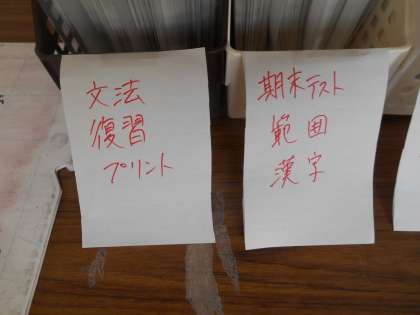 文法
復習
プリント
期末テスト
範囲
漢字